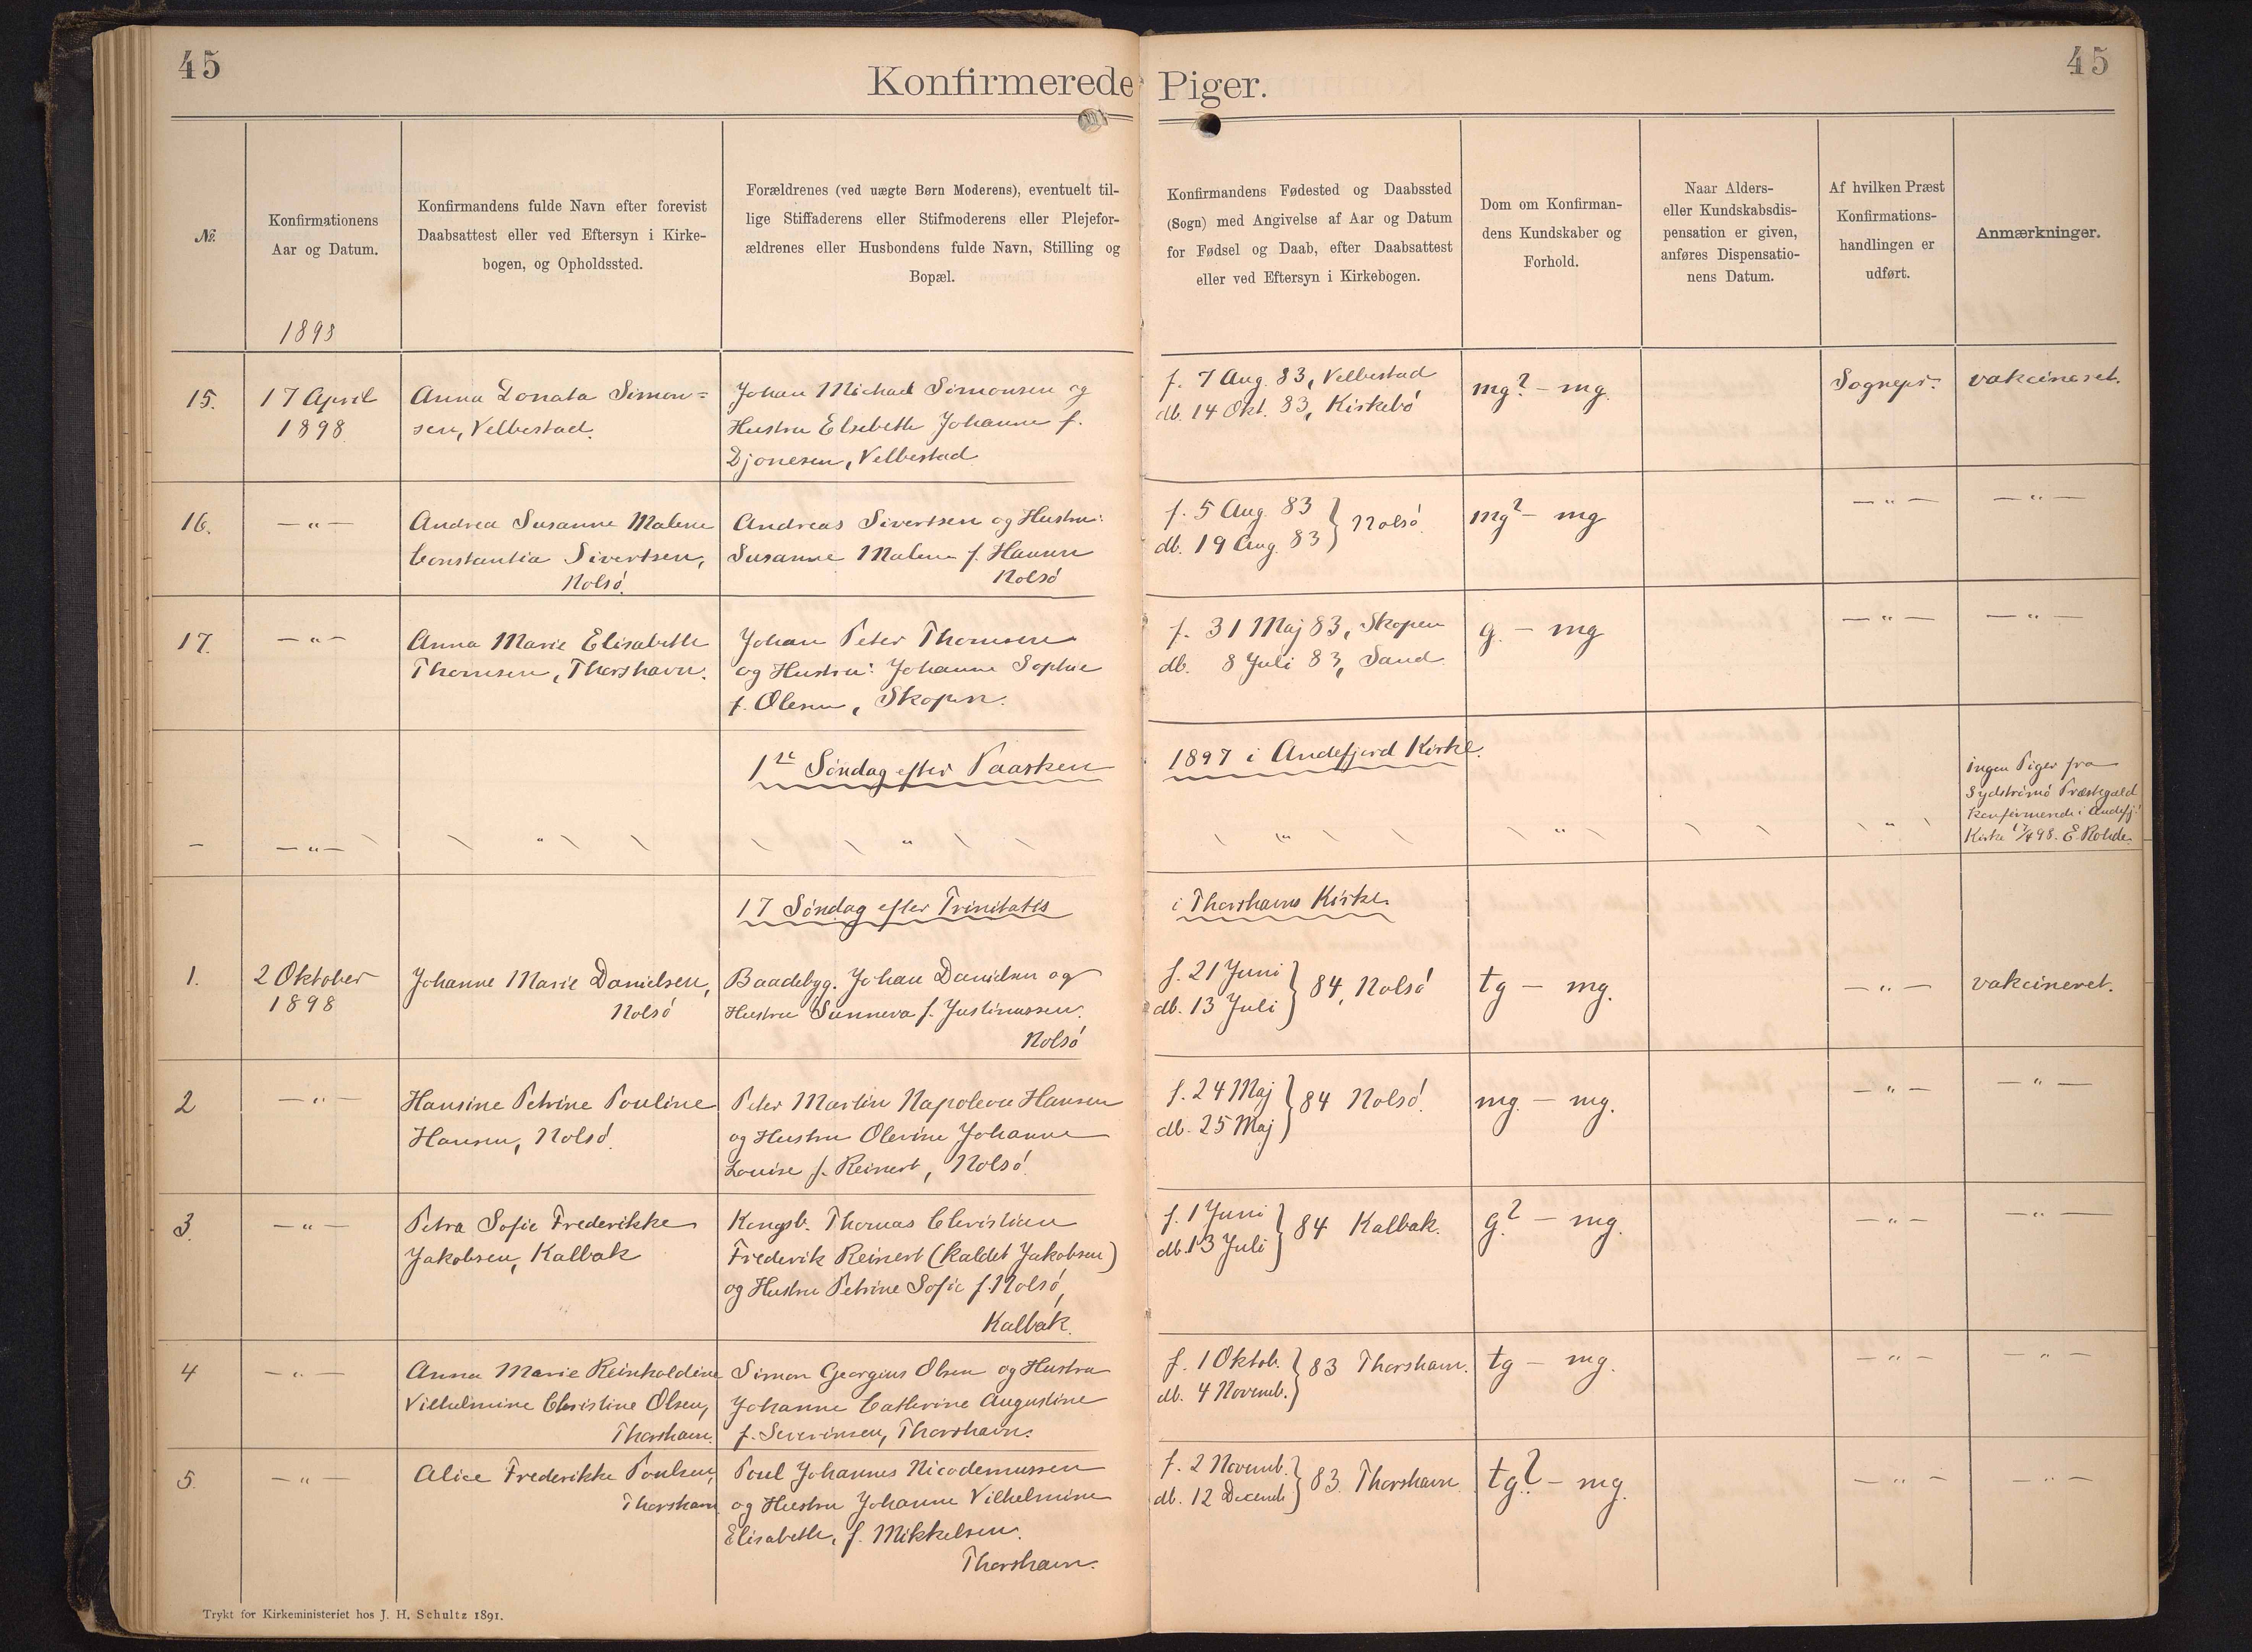 45
45
Konfirmerede Piger.
№.
Konfirmationens
Aar og Datum.
Konfirmandens fulde Navn efter forevist
Daabsattest eller ved Eftersyn i Kirke-
bogen, og Opholdssted.
Forældrenes (ved uægte Børn Moderens), eventuelt til-
lige Stiffaderens eller Stifmoderens eller Plejefor-
ældrenes eller Husbondens fulde Navn, Stilling og
Bopæl.
Konfirmandens Fødested og Daabssted
(Sogn) med Angivelse af Aar og Datum
for Fødsel og Daab, efter Daabsattest
eller ved Eftersyn i Kirkebogen.
Dom om Konfirman-
dens Kundskaber og
Forhold.
Naar Alders-
eller Kundskabsdis-
pensation er given,
anføres Dispensatio-
nens Datum.
Af hvilken Præst
Konfirmations-
handlingen er
udført.
Anmærkninger.
1898
15.
17 April
1898
Anna Donata Simon=
sen, Velbestad.
Johan Michael Simonsen og
Hustru Elsebeth Johanne f.
Djonesen, Velbestad
f. 7 Aug. 83, Velbestad
db. 14 Okt. 83, Kirkebö
mg? - mg.
Sognepr.
vakcineret.
16.
— " —
Andrea Susanne Malene
Constantia Sivertsen,
Nolsö.
Andreas Sivertsen og Hustru:
Susanne Malene f. Hansen
Nolsö
f. 5 Aug. 83
db. 19 Aug. 83 } Nolsö
mg? - mg
— " —
— " —
17.
— " —
Anna Marie Elisabeth
Thomsen, Thorshavn.
Johan Peter Thomsen
og Hustru: Johanne Sophie
f. Olsen, Skopen.
f. 31 Maj 83, Skopen
db. 8 Juli 83, Sand.
g. - mg
— " —
— " —
1ste Söndag efter Paasken
1897 i Andefjord Kirke.
— — " — " " " " "
Ingen Piger fra
Sydströmö Præstegæld
konfirmerede i Andefj.
Kirke 17/4 98. E. Rohde.
17 Söndag efter Trinitatis
i Thorshavns Kirke.
1.
2 Oktober
1898
Johanne Marie Danielsen,
Nolsö
Baadebyg. Johan Danielsen og
Hustru Sunneva f. Justinussen.
Nolsö
f. 21 Juni
db. 13 Juli } 84, Nolsö
tg - mg.
— " —
vakcineret.
2
— " —
Hansine Petrine Pouline
Hansen, Nolsö.
Peter Martin Napoleon Hansen
og Hustru Olevine Johanne
Louise f. Reinert, Nolsö.
f. 24 Maj
db. 25 Maj } 84 Nolsö.
mg. - mg.
— " —
— " —
3.
— " —
Petra Sofie Frederikke
Jakobsen, Kalbak
Kongsb. Thomas Christian
Frederik Reinert (kaldet Jakobsen)
og Hustru Petrine Sofie f. Nolsö,
Kalbak.
f. 1 Juni
db. 13 Juli } 84 Kalbak.
g? - mg.
— " —
— " —
4
— " —
Anna Marie Reinholdine
Vilhelmine Christine Olsen,
Thorshavn.
Simon Georgius Olsen og Hustru
Johanne Cathrine Augustine
f. Severinsen, Thorshavn.
f. 1 Oktob.
db. 4 Novemb. } 83 Thorshavn.
tg - mg.
— " —
— " —
5.
— " —
Alice Frederikke Poulsen,
Thorshavn
Poul Johannes Nicodemussen
og Hustru Johanne Vilhelmine
Elisabeth, f. Mikkelsen.
Thorshavn.
f. 2 Novemb.
db. 12 Decemb } 83. Thorshavn.
tg? - mg.
— " —
— " —
Trykt for Kirkeministeriet hos J. H. Schultz 1891.